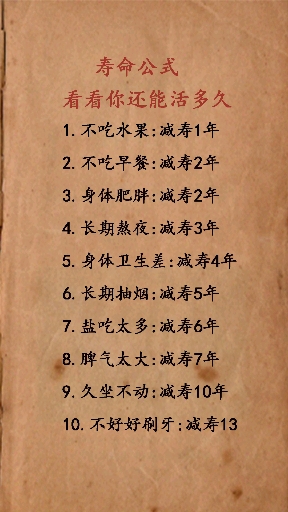 寿命公式
看看你还能活多久
1. 不吃水果:减寿1年
2. 不吃早餐:减寿2年
3. 身体肥胖:减寿2年
4. 长期熬夜:减寿3年
5. 身体卫生差:减寿4年
6. 长期抽烟:减寿5年
7. 盐吃太多:减寿6年
8. 脾气太大:减寿7年
9. 久坐不动:减寿10年
10. 不好好刷牙:减寿13